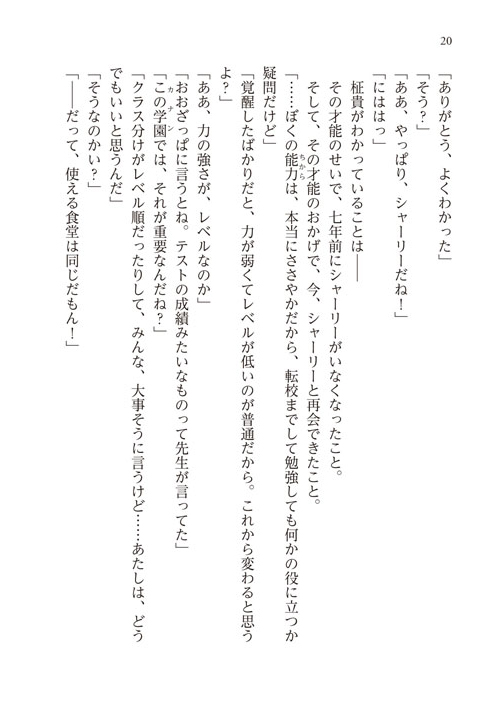 20
「ありがとう、よくわかった」
「そう？」
「ああ、やっぱり、シャーリーだね！」
「にははっ」
柾貴がわかっていることは――
その才能のせいで、七年前にシャーリーがいなくなったこと。
そして、その才能のおかげで、今、シャーリーと再会できたこと。
「……ぼくの能力ちからは、本当にささやかだから、転校までして勉強しても何かの役に立つか
疑問だけど」
「覚醒したばかりだと、力が弱くてレベルが低いのが普通だから。これから変わると思う
よ？」
「ああ、力の強さが、レベルなのか」
「おおざっぱに言うとね。テストの成績みたいなものって先生が言ってた」
「この学園カナンでは、それが重要なんだね？」
「クラス分けがレベル順だったりして、みんな、大事そうに言うけど……あたしは、どう
でもいいと思うんだ」
「そうなのかい？」
「――だって、使える食堂は同じだもん！」